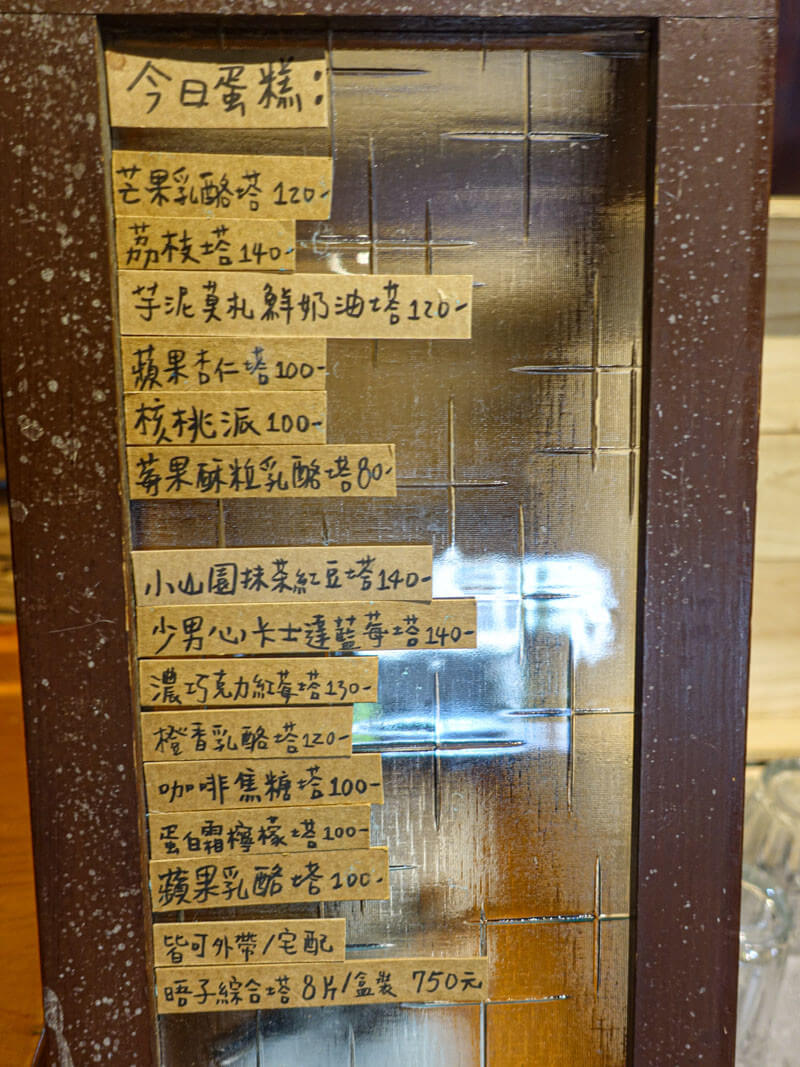 今日蛋糕:
芒果乳酪塔 120-
荔枝塔 140-
芋泥莫札鮮奶油塔 120-
蘋果杏仁塔 100-
核桃派 100-
莓果酥粒乳酪塔 80-
小山園抹茶紅豆塔 140-
少男心卡士達藍莓塔 140-
濃巧克力紅莓塔 130-
橙香乳酪塔 120-
咖啡焦糖塔 100-
蛋白霜檸檬塔 100-
蘋果乳酪塔 100-
皆可外帶/宅配
晤子綜合塔 8片/盒裝 750元